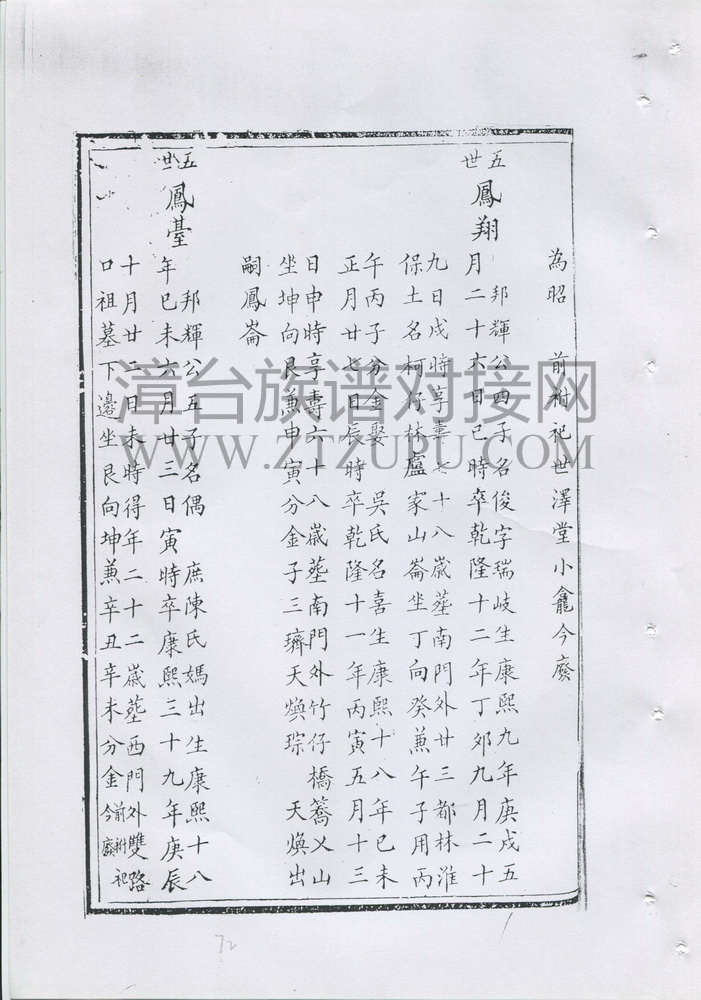 為昭　前祔祀世澤堂小龕今廢
五世
鳳翔
邦輝公四子名俊字瑞岐生康熙九年庚戌五
月二十六日巳時卒乾隆十二年丁夘九月二十
九日戌時享壽七十八歲塟南門外廿三都林淮
保土名柯仔林盧家山崙坐丁向癸兼午子用丙
午丙子分金娶　吳氏名喜生康熙十八年己未
正月廿七日辰時卒乾隆十一年丙寅五月十三
日申時享壽六十八歲塟南門外竹仔橋蕎乂山
坐坤向艮兼申寅分金子三璾天煥琮　天煥出
嗣鳳崙
五世
鳳臺
邦輝公五子名偶　庶陳氏媽出生康熙十八
年巳未六月廿三日寅時卒康熙三十九年庚辰
十月廿二日未時得年二十二歲塟西門外雙路
口祖墓下邊坐艮向坤兼辛丑辛未分金前祔祀
今廢
漳台族谱对接网
WWW.ZTZUPU.COM
72